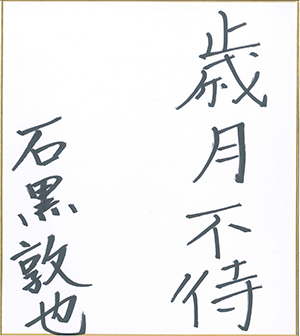 歳月不待
石黒敦也